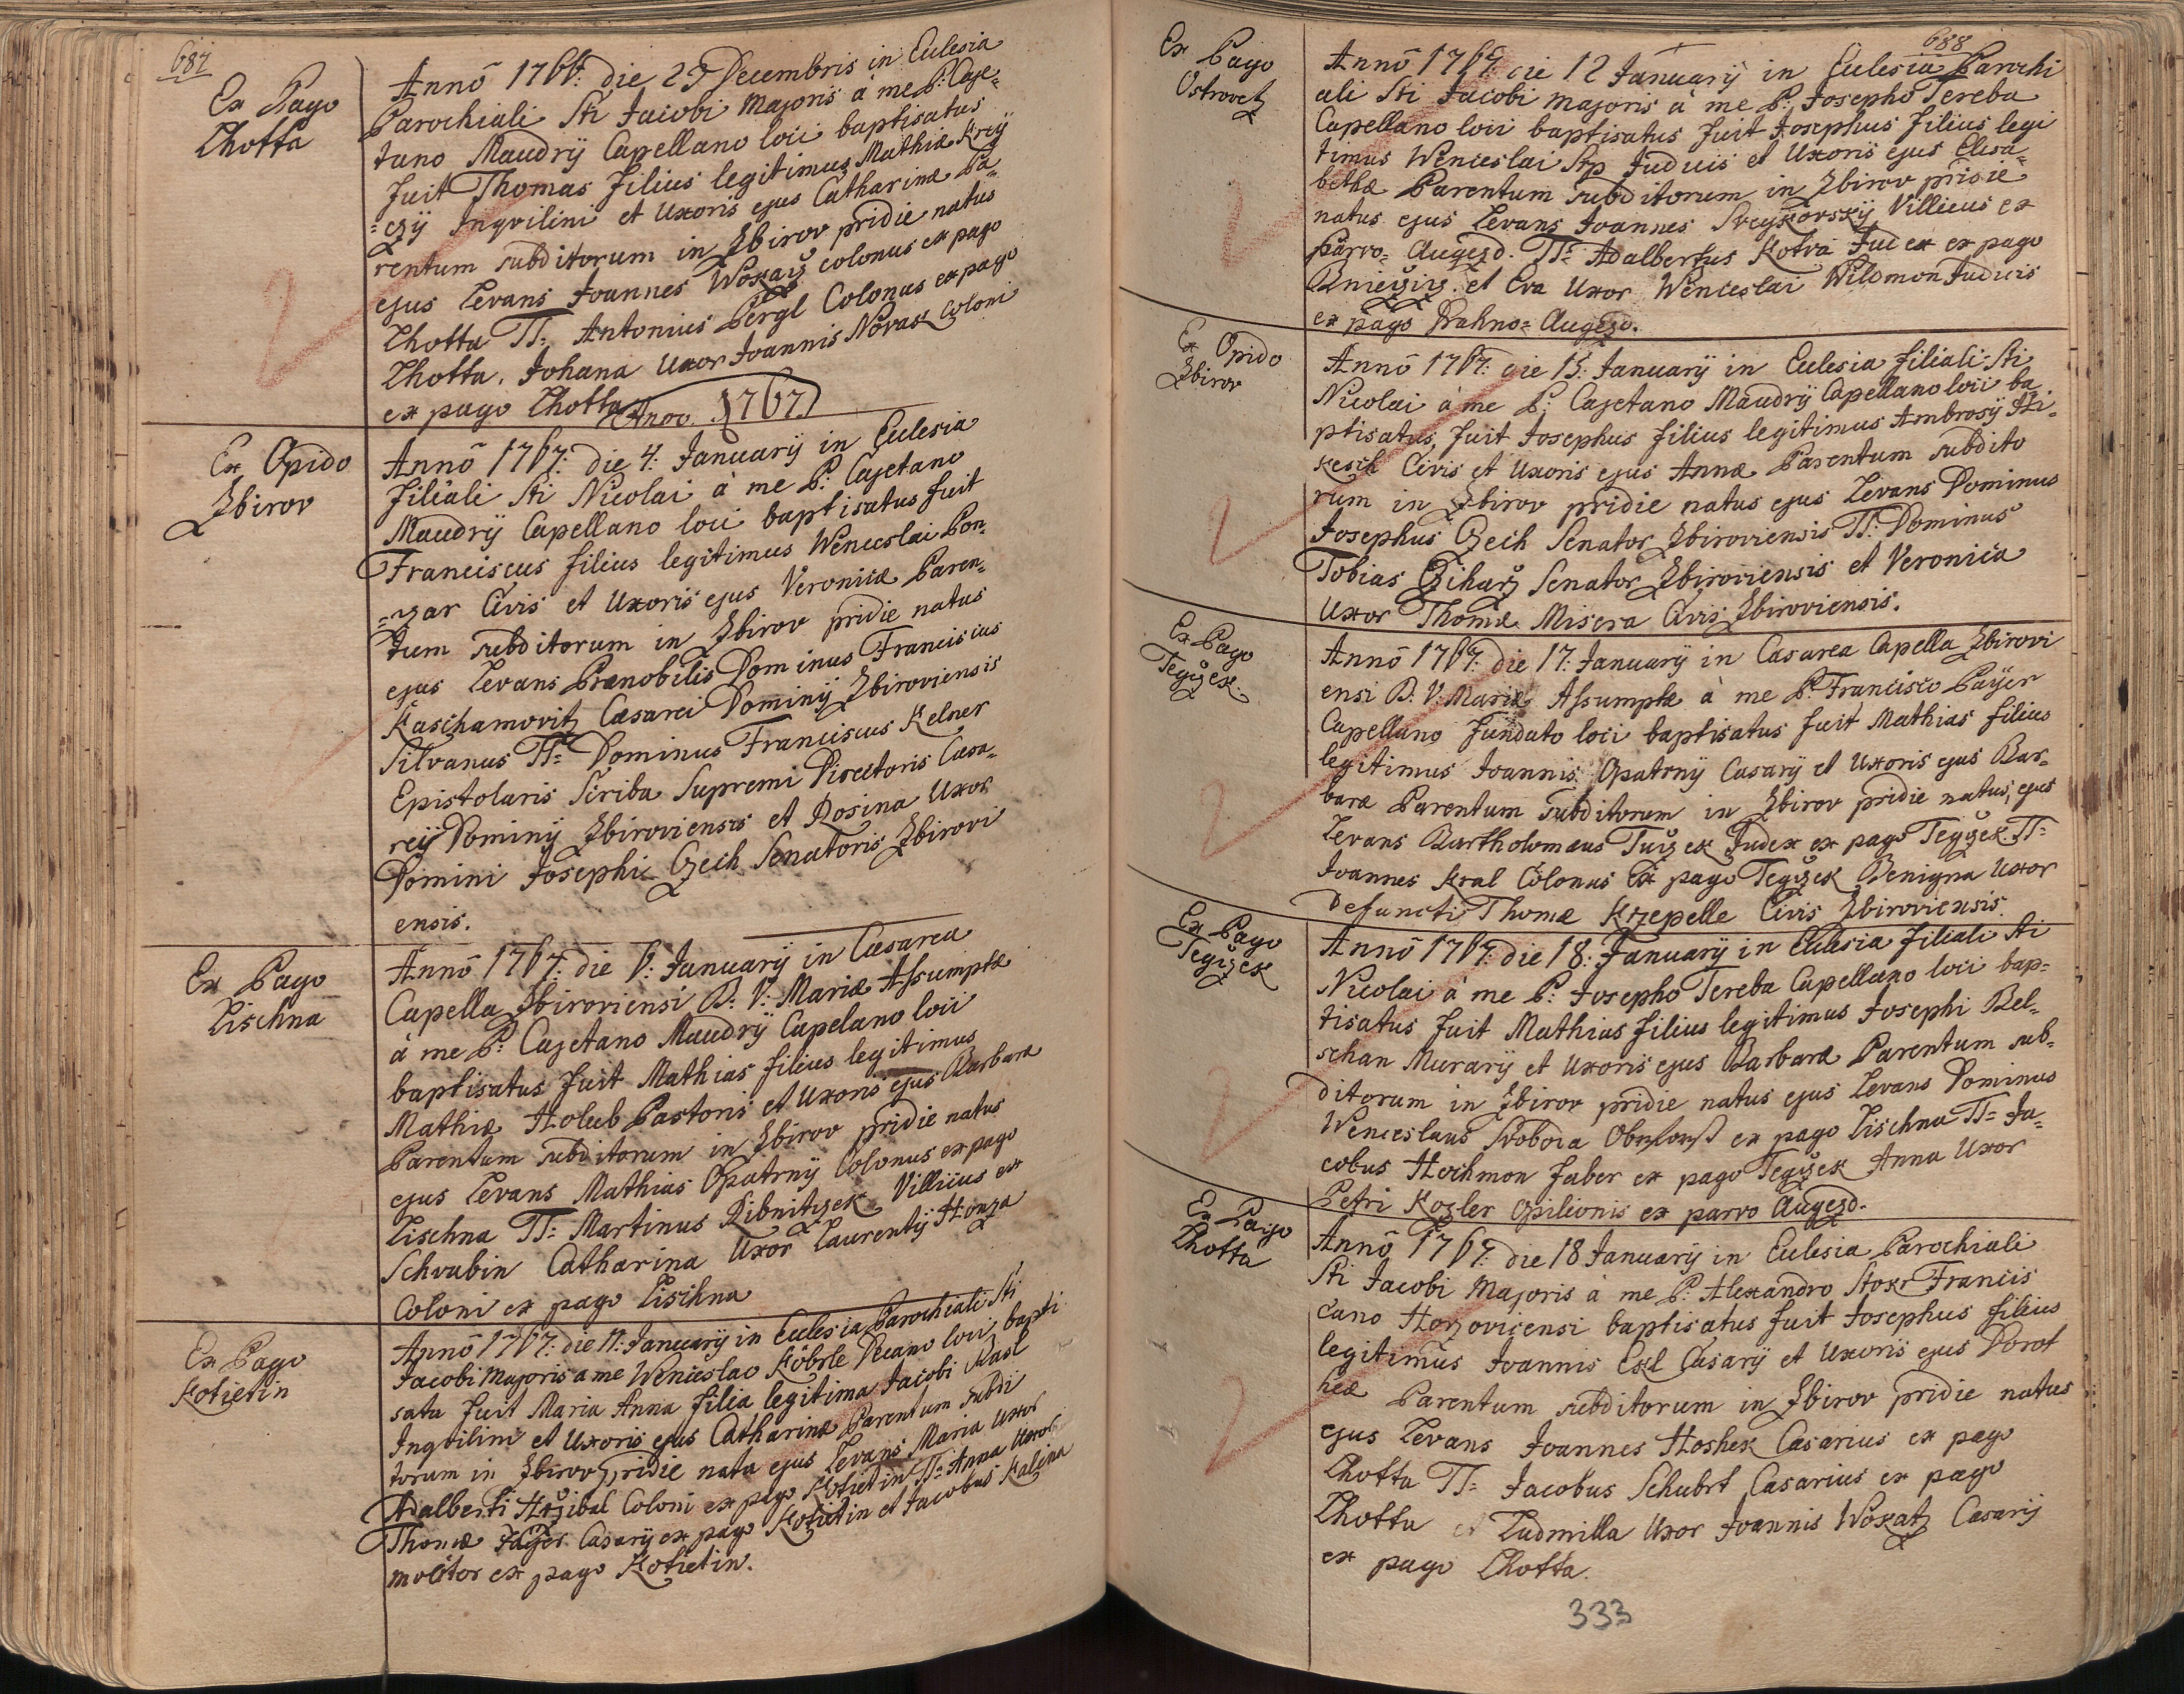 687
Ex Pago
Lhotta
Annō 1766: die 29 Decembris in Eulesia
Parochiali Sti Jacobi Majoris à me P: Caje-
tano Maudrÿ Capellano loci baptisatus
fuit Thomas filius legitimus Mathiæ Krey
=czÿ Inqvilini et Uxoris ejus Catharinæ Pa-
rentum subditorum in Zbirov pridie natus
ejus Levans Joannes Wokacz colonus ex pago
Lhotta TT= Antonius Pergl Colonus ex pago
Lhotta. Johana Uxor Joannis Novak Coloni
ex pago Lhotta
Anno 1767
Ex Opido
Zbirov
Annō 1767: die 4: Januarÿ in Eculesia
filiali Sti Nicolai à me P: Cajetano
Maudrÿ Capellano loci baptisatus fuit
Franciscus filius legitimus Wenceslai Pon-
=zar Civis et Uxoris ejus Veronicæ Paren-
tum subditorum in Zbirov pridie natus
ejus Levans Prænobilis Dominus Franciscus
Kaschamovitz Cæsarei Dominÿ Zbiroviensis
Silvanus TT= Dominus Franciscus Kelner
Epistolaris Scriba Supremi Directoris Cæsa-
reÿ Dominÿ Zbiroviensis et Rosina Uxor
Domini Josephi Czech Senatoris Zbirovi
ensis.
Ex Pago
Lischna
Annō 1767: die 6: Januarÿ in Cæsarea
Capella Zbiroviensi B: V: Mariæ Assumptæ
à me P: Cajetano Maudrÿ Capelano loci
baptisatus fuit Mathias filius legitimus
Mathiæ Holub Pastoris et Uxoris ejus Barbaræ
Parentum subditorum in Zbirov pridie natus
ejus Levans Mathias Opatrnÿ Colonus ex pago
Lischna TT: Martinus Ribnitzek Villicus ex
Schvabin Catharina Uxor Laurentÿ Honza
Coloni ex pago Lischna
Ex Pago
Kotietin
Annō 1767: die 11: Januarÿ in Eculesia Parochiali Sti
Jacobi Majoris a me Wenceslao Köbrle Decano loci bapti
sata fuit Maria Anna filia legitima Jacobi Kasl
Inqvilini et Uxoris ejus Catharinæ Parentum subdi
torum in Zbirov pridie nata ejus Levans Maria Uxor
Adalberti Hrzibal Coloni ex pago Kotietin TT= Anna Uxor
Thomæ Fayer Casarÿ ex pago Kotietin et Jacobus Kalina
molitor ex pago Kotietin.
688
Ex Pago
Ostrovetz
Annō 1767: die 12 Januarÿ in Eculesia Parochi
ali Sti Jacobi Majoris à me P: Josepho Tereba
Capellano loci baptisatus fuit Josephus filius legi
timus Wenceslai Sip Judicis et Uxoris ejus Elisa-
bethæ Parentum subditorum in Zbirov pridie
natus ejus Levans Joannes Sveykovskÿ Villicus ex
parvo= Augezd. TT= Adalbertus Kotva Judex ex pago
Kniezicz. et Eva Uxor Wenceslai Wildmon Judicis
ex pago Drahno= Augezd.
Ex Opido
Zbirov
Annō 1767: die 15: Januarÿ in Eculesia filiali Sti
Nicolai à me P: Cajetano Maudrÿ Capellano loci ba
ptisatus fuit Josephus filius legitimus Ambrosÿ Hi-
kesch Civis et Uxoris ejus Annæ Parentum subdito
rum in Zbirov pridie natus ejus Levans Dominus
Josephus Czech Senator Zbiroviensis TT: Dominus
Tobias Cziharz Senator Zbiroviensis et Veronica
Uxor Thomæ Misera Civis Zbiroviensis.
Ex Pago
Tegczek.
Annō 1767: die 17: Januarÿ in Cæsarea Capella Zbirovi
ensi B: V: Mariæ Assumptæ à me P: Francisco Paÿer
Capellano fundato loci baptisatus fuit Mathias filius
legitimus Joannis Opatrnÿ Casarÿ et Uxoris ejus Bar-
baræ Parentum subditorum in Zbirov pridie natus, ejus
Levans Bartholomæus Tuczek Judex ex pago Tegczek TT=
Joannes Kral Colonus ex pago Tegczek Benigna Uxor
Defuncti Thomæ Krzepelle Civis Zbiroviensis.
Ex Pago
Tegczek
Annō 1767: die 18: Januarÿ in Eculesia filiali Sti
Nicolai à me P: Josepho Tereba Capellano loci bap=
tisatus fuit Mathias filius legitimus Josephi Bel-
schan Murarÿ et Uxoris ejus Barbaræ Parentum sub-
ditorum in Zbirov pridie natus ejus Levans Dominus
Wenceslaus Svoboda ex pago Lischna TT= Ja-
cobus Hochmon faber ex pago Tegczek Anna Uxor
Petri Kozler Opilionis ex parvo Augezd.
Ex Pago
Lhotta
Annō 1767: die 18 Januarÿ in Eculesia Parochiali
Sti Jacobi Majoris à me P: Alexandro Stokr Francis
cano Horzovicensi baptisatus fuit Josephus filius
legitimus Joannis Exl Casarÿ et Uxoris ejus Dorot
heæ Parentum subditorum in Zbirov pridie natus
ejus Levans Joannes Hoshek Casarius ex pago
Lhotta TT= Jacobus Schubrt Casarius ex pago
Lhotta et Ludmilla Uxor Joannis Wokatz Casarÿ
ex pago Lhotta.
333